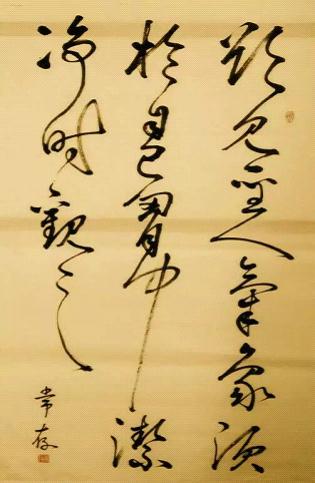 欲见圣人气象须
于自己胸中洁
净时观之
常存